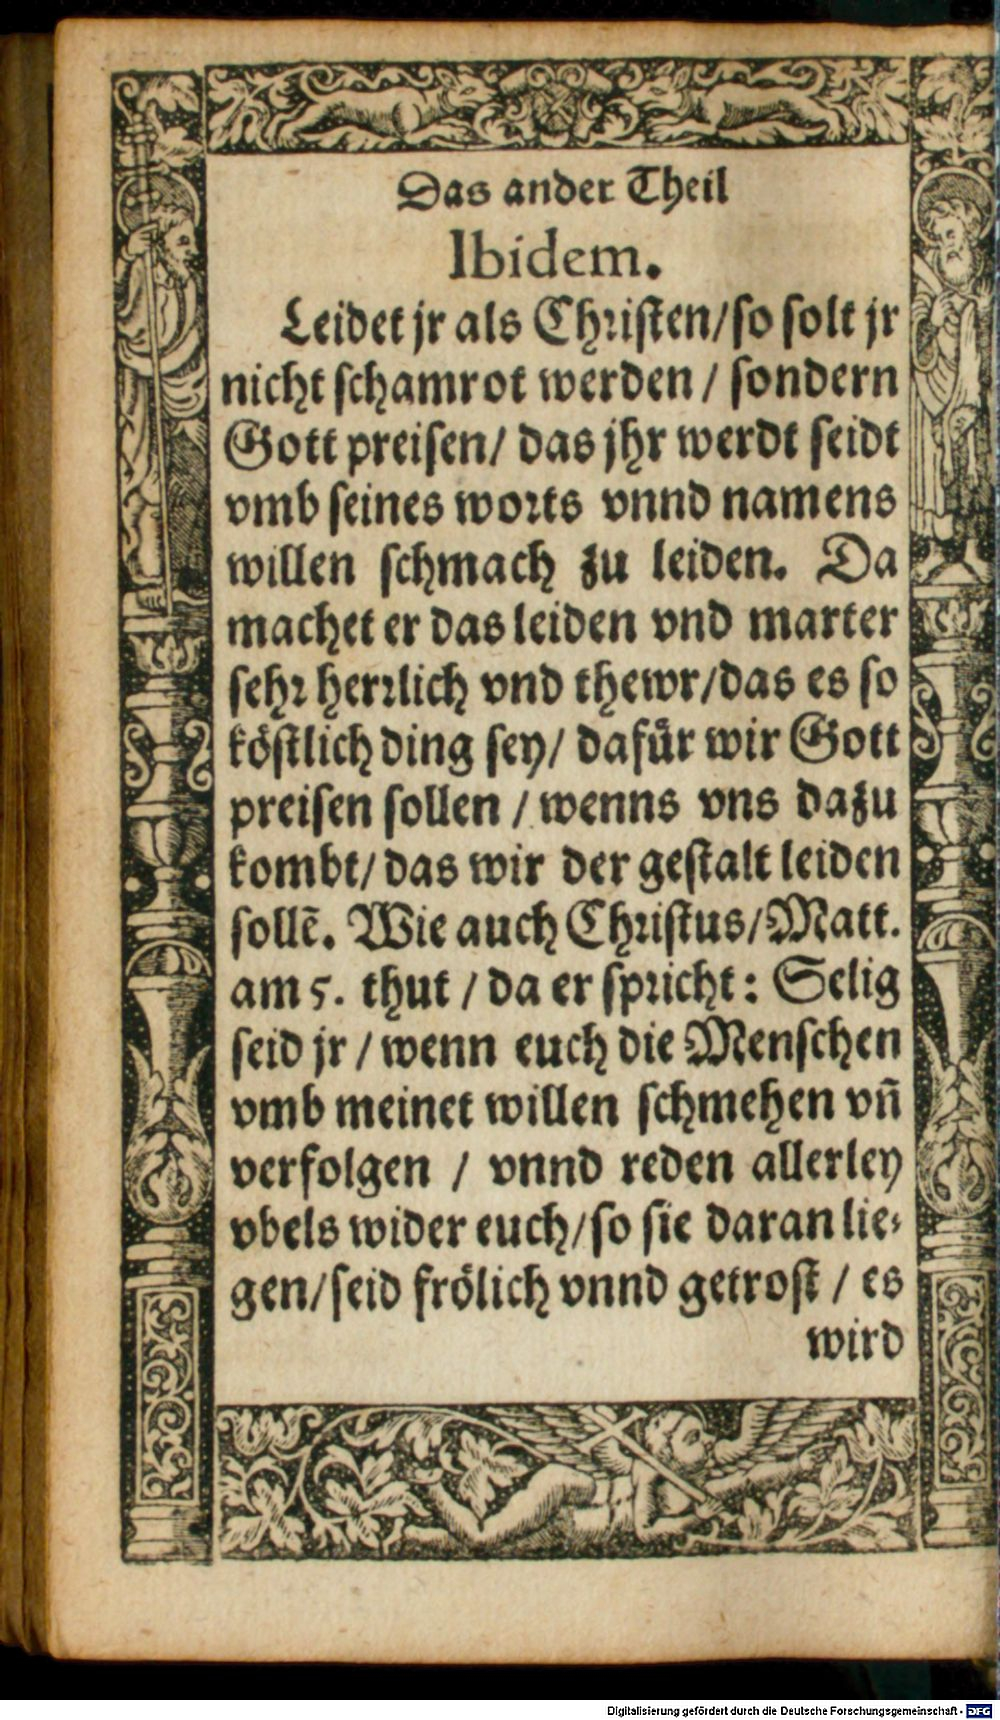 Das ander Theil
Ibidem.
Leidet jr als Christen/so solt jr
nicht schamrot werden / sondern
Gott preisen/ das jhr werdt seidt
vmb seines worts vnnd namens
willen schmach zu leiden. Da
machet er das leiden vnd marter
sehr herrlich vnd thewr/das es so
köstlich ding sey/ dafür wir Gott
preisen sollen / wenns vns dazu
kombt/ das wir der gestalt leiden
sollē. Wie auch Christus/Matt.
am 5. thut / da er spricht: Selig
seid jr / wenn euch die Menschen
vmb meinet willen schmehen vñ
verfolgen / vnnd reden allerley
vbels wider euch/so sie daran lie-
gen/seid frölich vnnd getrost / es
wird
Digitalisierung gefördert durch die Deutsche Forschungsgemeinschaft - DFG